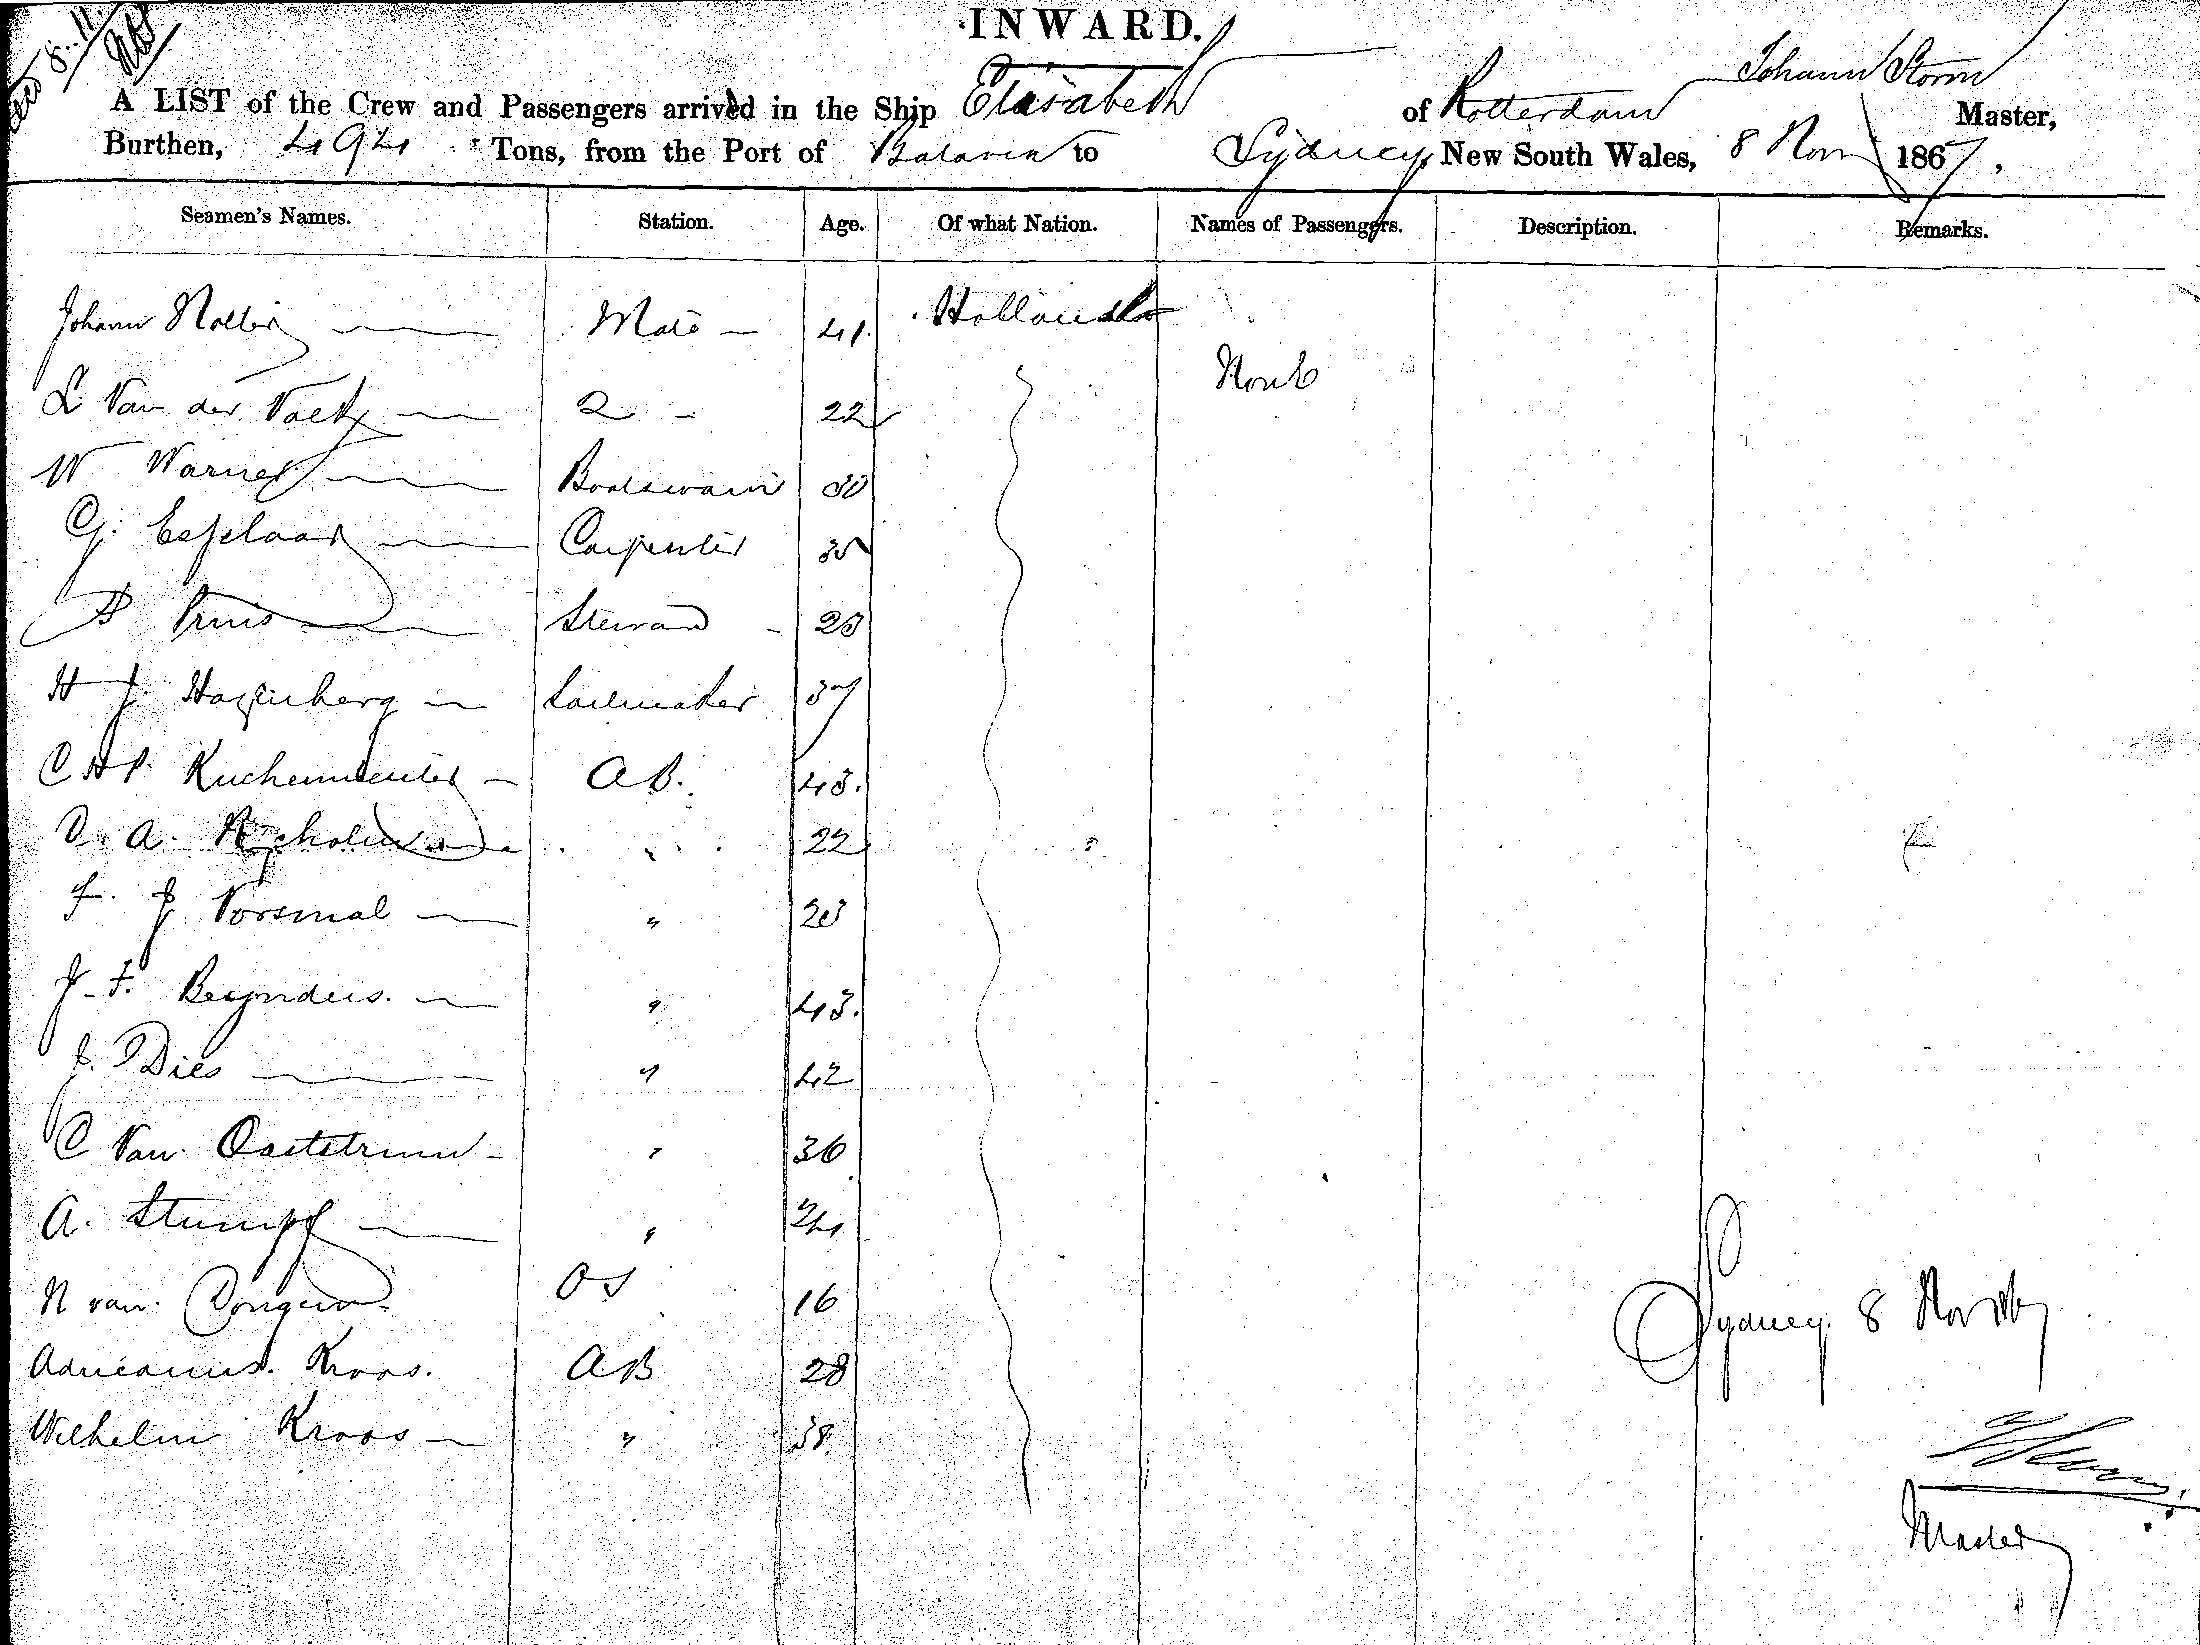 INWARD.
A LIST of the Crew and Passengers arrived in the Ship Elisabeth of Rotterdam Johann Storm Master,
Burthen, 494 Tons, from the Port of Batavia to Sydney, New South Wales, 8 Nov 1867,
Seamen's Names. Station. Age. Of what Nation. Names of Passengers. Description. Remarks.
Johann Mate 41 Holland
None
L Van der 2 22
W Warner Boatswain 30
G. Espelaar Carpenter 35
Pruis Steward 23
H J Hazenberg Sailmaker 37
C H P. Kuchenmeister AB. 43.
D. A. " 22
F. J Vorsmal " 23
J. F. Beynders. " 43.
J. Dies " 42
C Van " 36
A. Stumpf " 24
N van Dongen OS 16
Sydney 8 Nov
Adrianus. Kroos. AB 28
Wilhelm Kroos " 38
Master